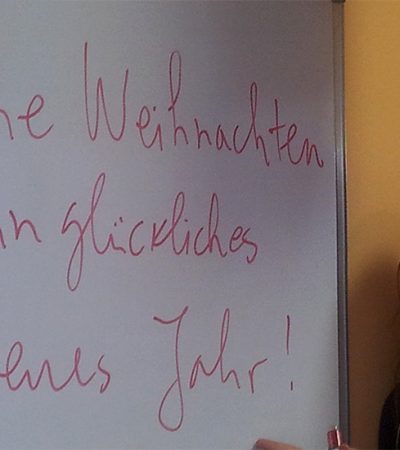 ne Weihnachten
in glückliches
eues Jahr!